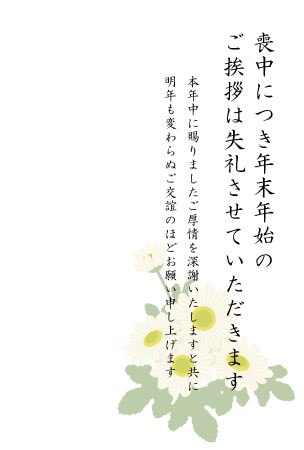 喪中につき年末年始の
ご挨拶は失礼させていただきます
本年中に賜りましたご厚情を深謝いたしますと共に
明年も変わらぬご交誼のほどお願い申し上げます